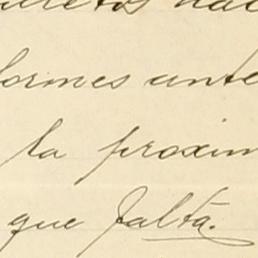 formes ante
la proxim
que falta.